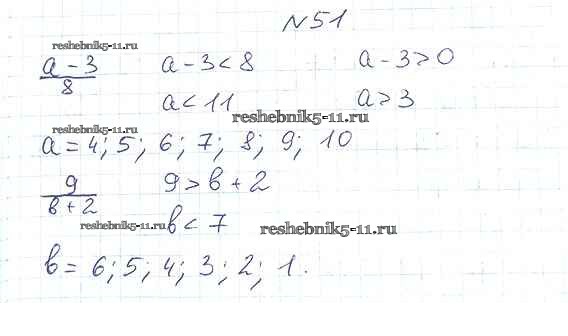 N51
reshebnik5-11.ru
a - 3 / 8   a - 3 < 8   a - 3 > 0
a < 11   a > 3
reshebnik5-11.ru
reshebnik5-11.ru
a = 4; 5; 6; 7; 8; 9; 10
9 / в + 2   9 > в + 2
reshebnik5-11.ru   в < 7
reshebnik5-11.ru
в = 6; 5; 4; 3; 2; 1.